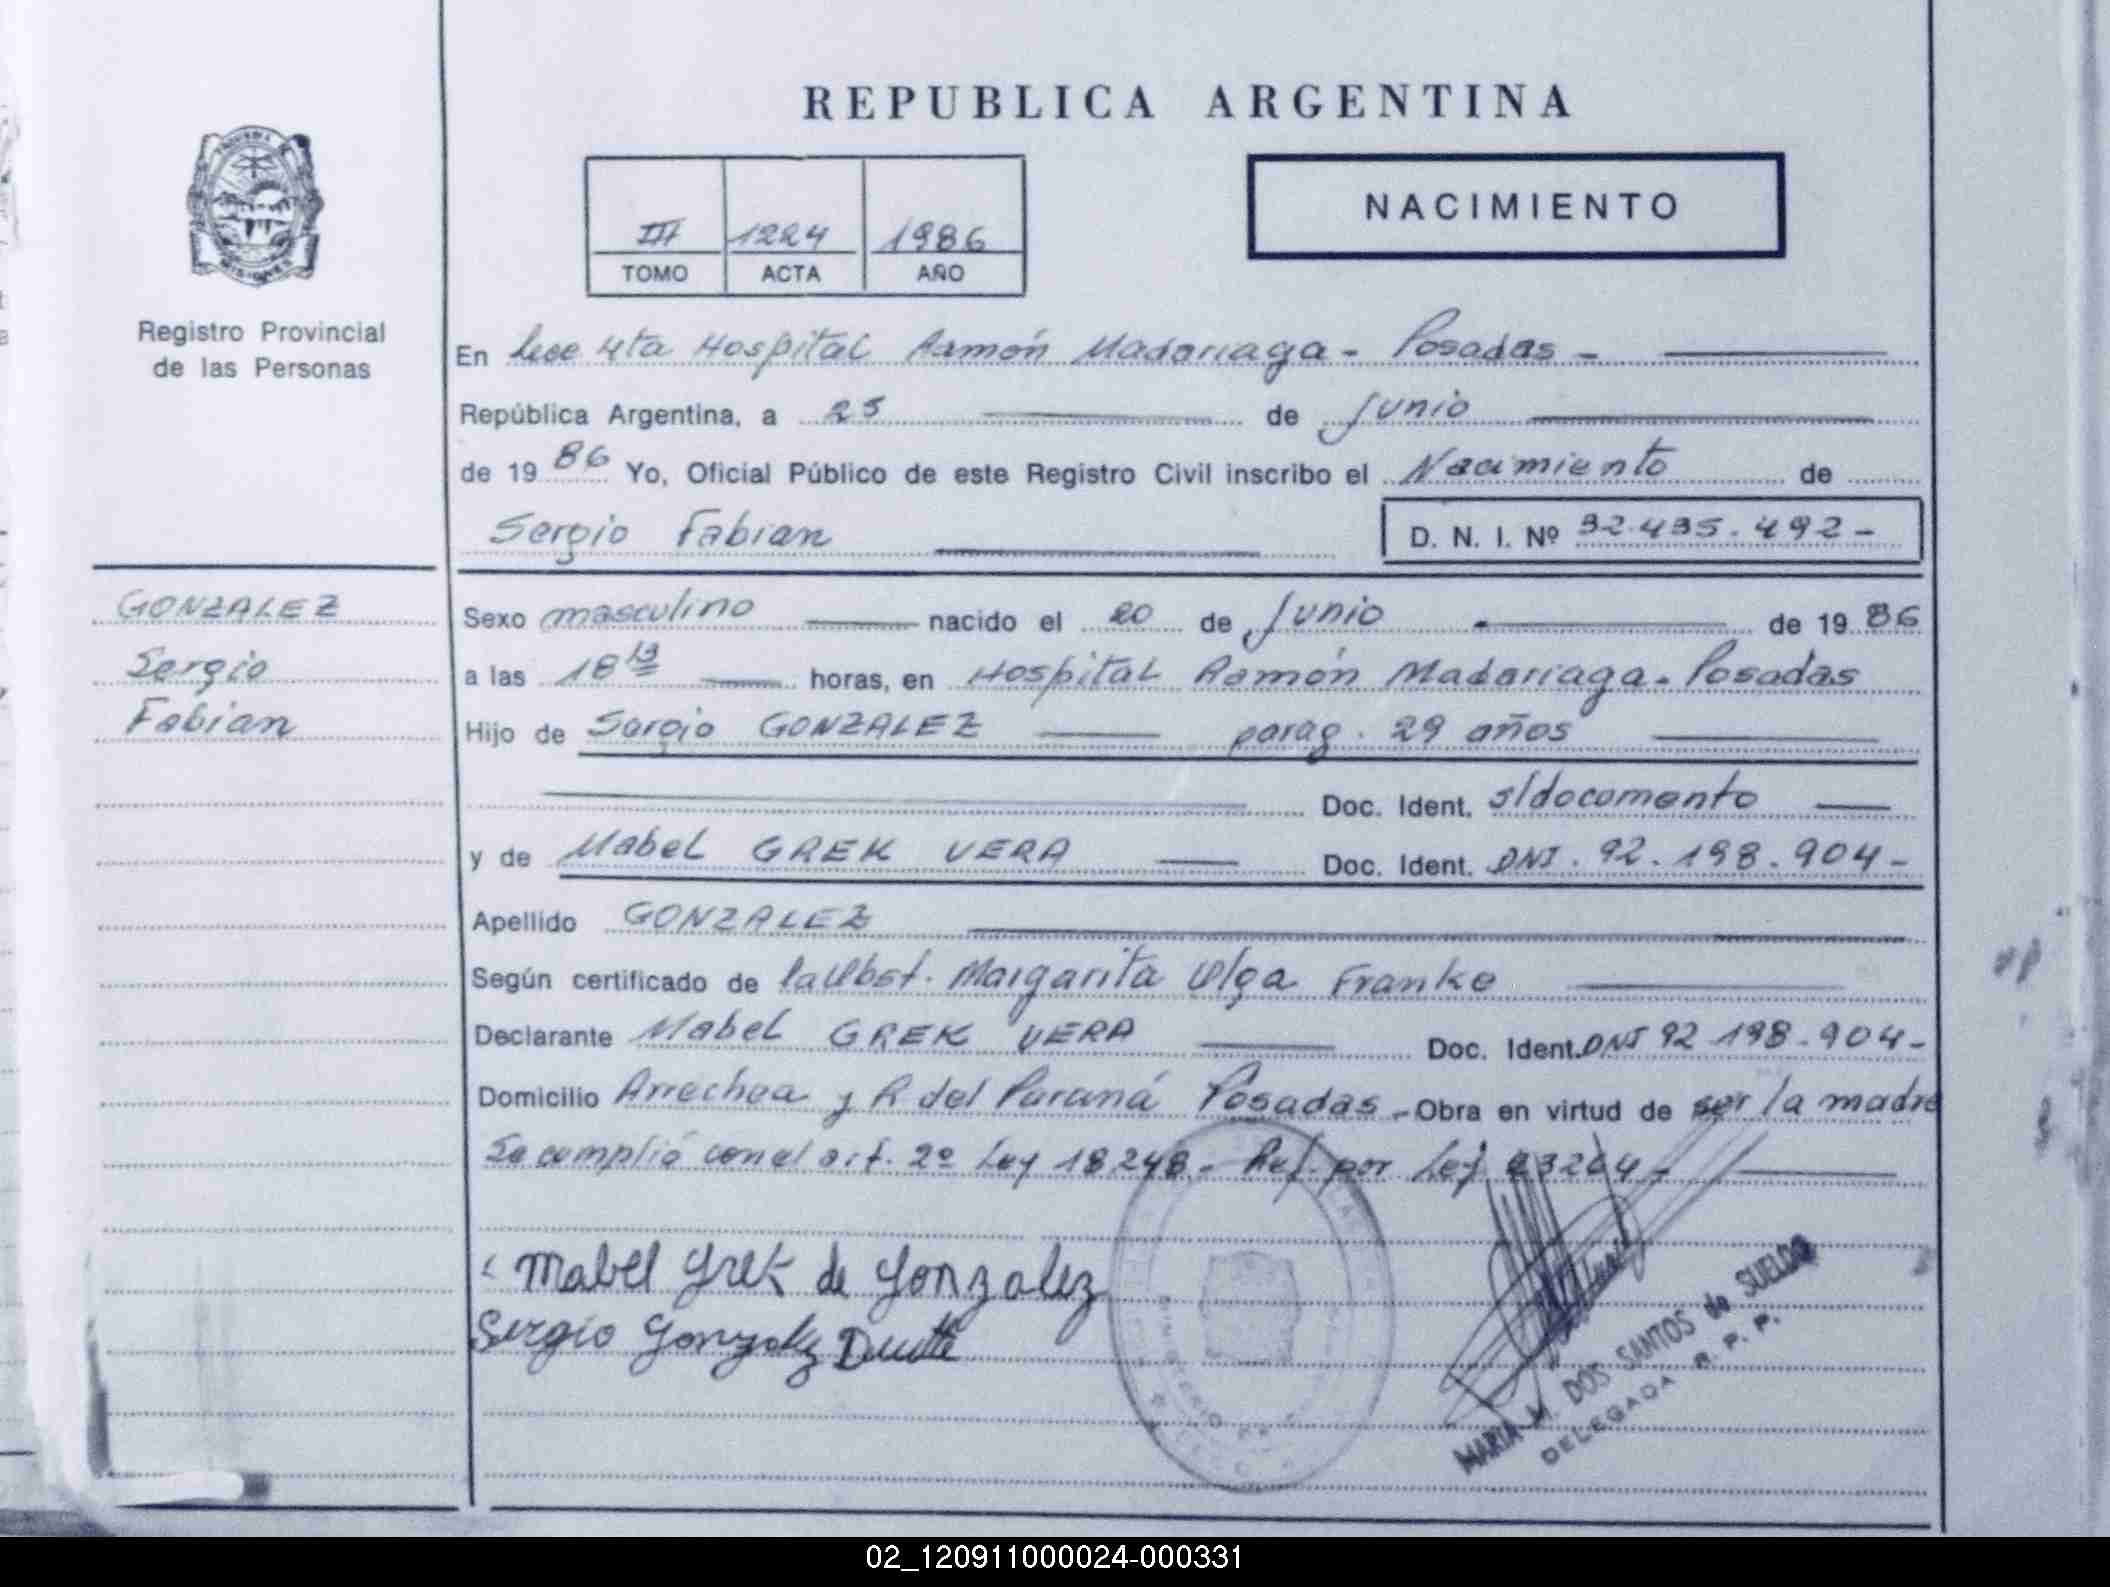 REPUBLICA ARGENTINA
PROVINCIA DE
MISIONES
III 1224 1986
TOMO ACTA AÑO
NACIMIENTO
Registro Provincial
de las Personas
En 4ta Hospital Ramón Madariaga - Posadas -
República Argentina, a 25 de Junio
de 1986 Yo, Oficial Público de este Registro Civil inscribo el Nacimiento de
Sergio Fabian D. N. I. Nº 32.435.492-
GONZALEZ
Sergio
Fabian
Sexo masculino nacido el 20 de Junio de 1986
a las 18 13 horas, en Hospital Ramón Madariaga - Posadas
Hijo de Sergio GONZALEZ parag. 29 años
Doc. Ident. s/documento
y de Mabel GREK VERA Doc. Ident. DNI. 92.198.904-
Apellido GONZALEZ
Según certificado de la Obst. Margarita Olga Franke
Declarante Mabel GREK VERA Doc. Ident. DNI 92.198.904-
Domicilio Arrechea y R del Paraná Posadas - Obra en virtud de ser la madre
Se cumplió con el art. 2º Ley 18248 - Ref. por Ley 23264 -
Mabel Grek de Gonzalez
Sergio Gonzalez
MARIA M. DOS SANTOS de SUELDO
DELEGADA R. P. P.
MINISTERIO
02_120911000024-000331